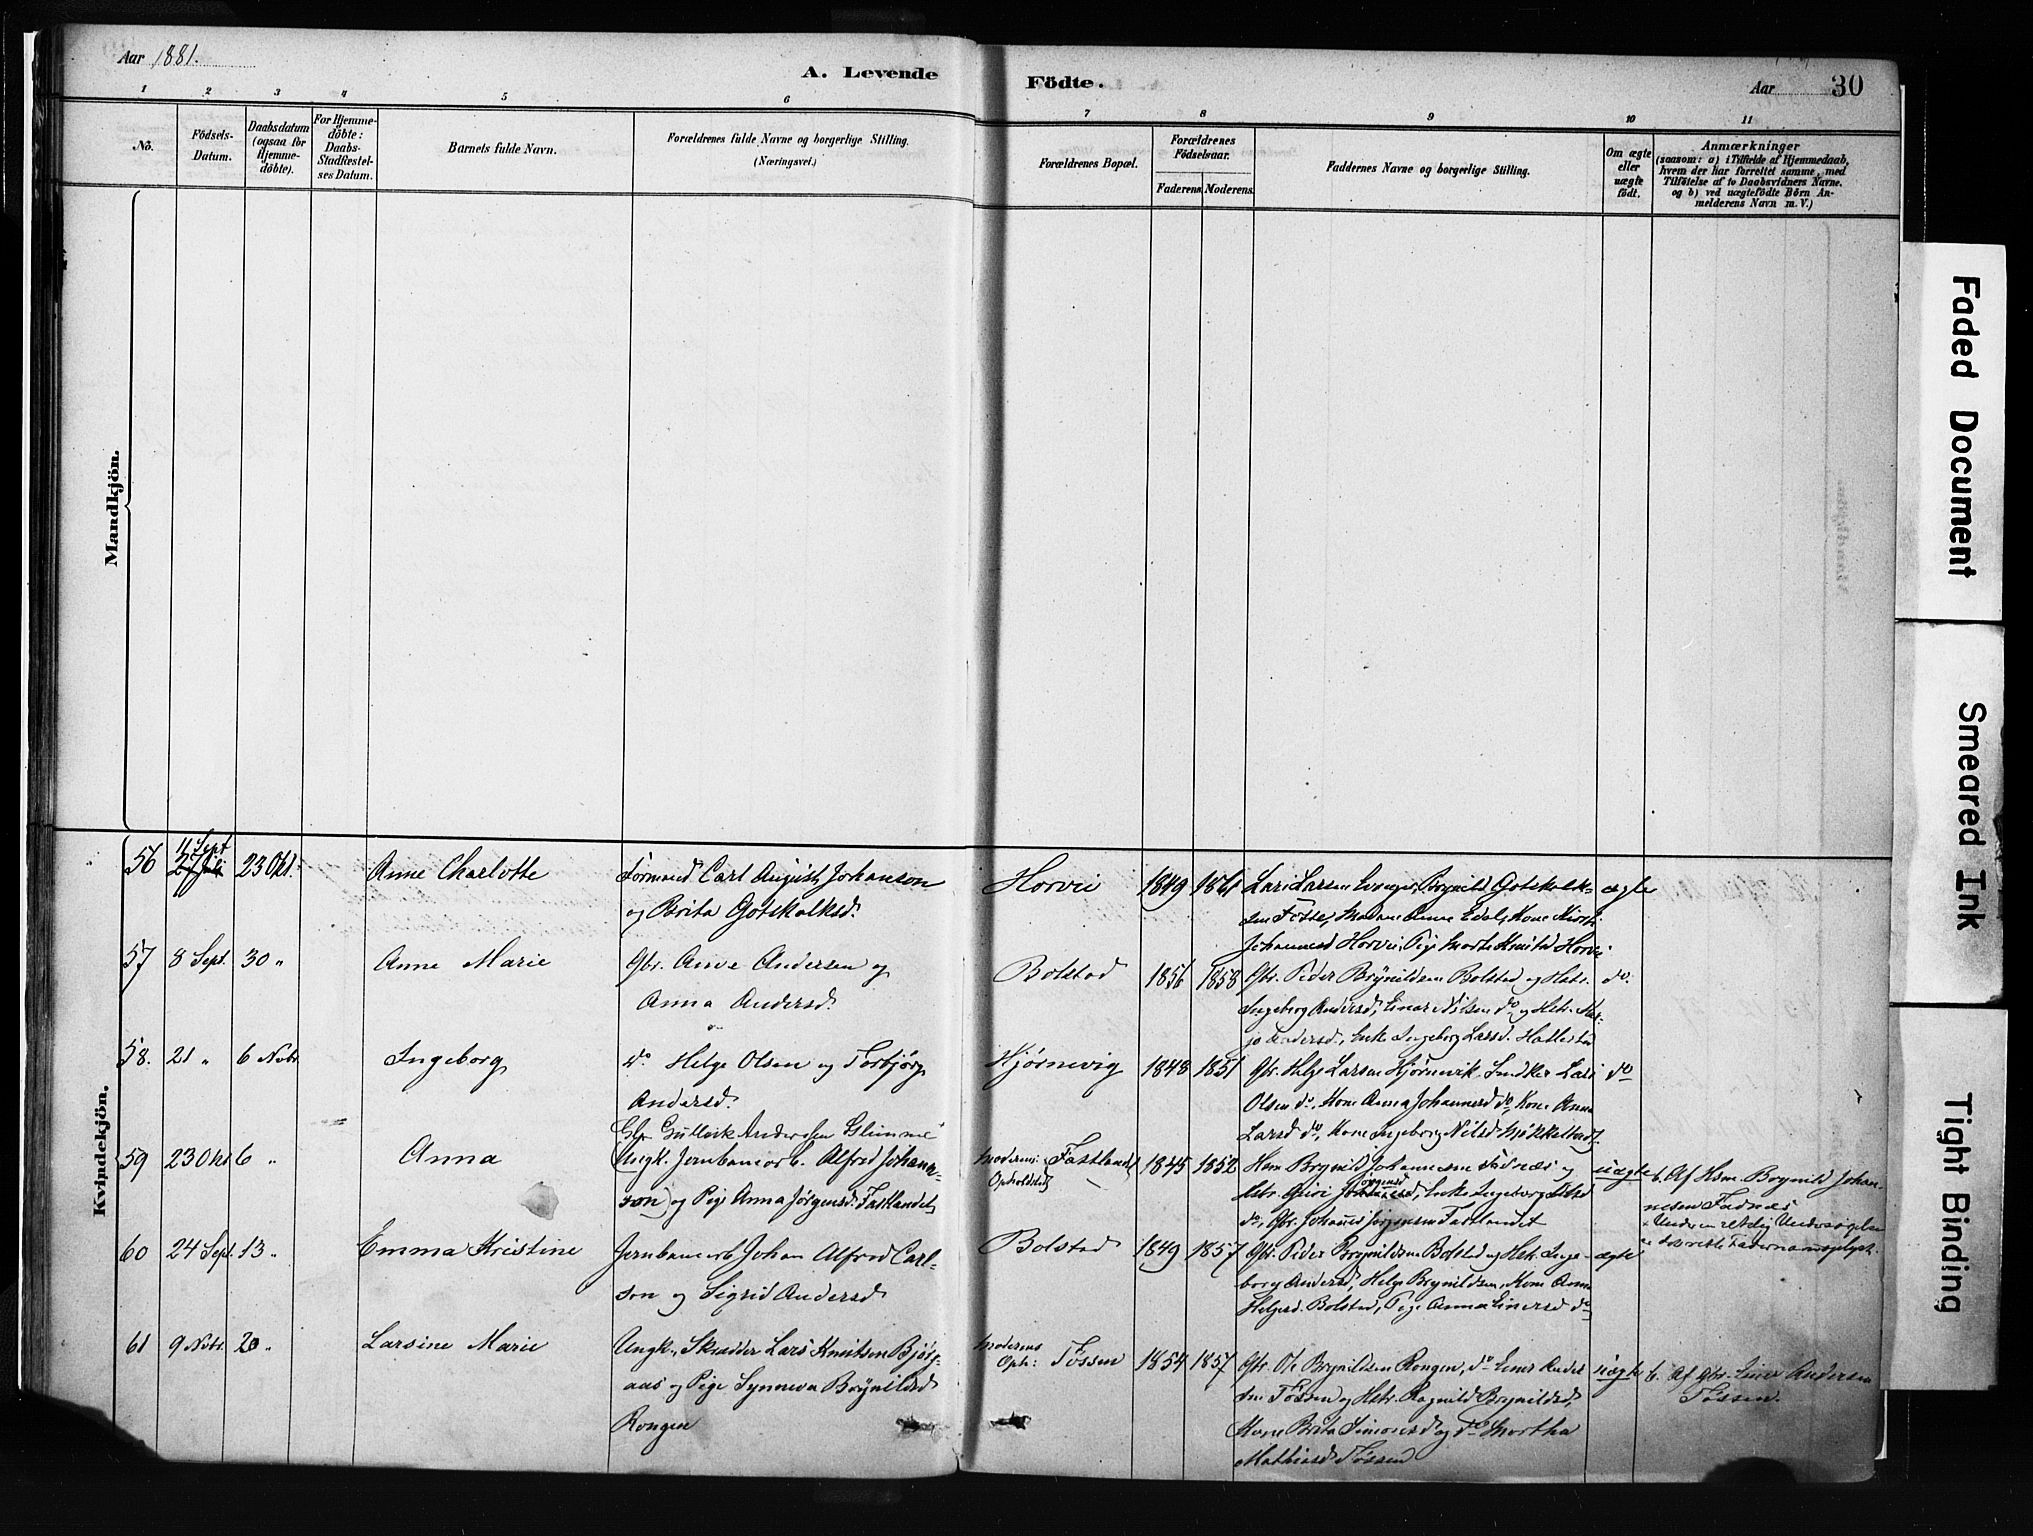 Aar 1881.
A. Levende
Födte.
Aar 30
1 2 3 4 5 6 7 8 9 10 11
No.
Födsels-
Datum.
Daabsdatum
(ogsaa for
Hjemme-
döbte).
For Hjemme-
döbte:
Daabs-
Stadfæstel-
ses Datum.
Barnets fulde Navn.
Forældrenes fulde Navne og borgerlige Stilling.
(Næringsvei.)
Forældrenes Bopæl.
Forældrenes
Födselsaar.
Faderens. Moderens.
Faddernes Navne og borgerlige Stilling.
Om ægte
eller
uægte
födt.
Anmærkninger
(saasom: a) i Tilfælde af Hjemmedaab,
hvem der har forrettet samme, med
Tilföielse af to Daabsvidners Navne.
og b) ved uægtefödte Börn An-
melderens Navn m. V.)
Mandkjön.
Kvindekjön.
56
11 Sept
27 Juli
23 Okt.
Anne Charlotte
Formand Carl August Johanson
og Brita Gotskalksd.
Horvei
1849 1861
Lars Larsen Evanger, Brynild Gotskalk-
sen Fosse, Madame Anne Edal, Kone Kirst.
Johannesd Horvei, Pige Marte Knutsd Horvei
ægte
57
8 Sept.
30 "
Anne Marie
Gbr. Anve Andersen og
Anna Andersd.
Bolstad
1856 1858
Gbr. Peder Brynildsen Bolstad og Hstr.
Ingeborg Andersd, Einar Nilsen do og Hstr. Mar-
jo Andersd., Enke Ingeborg Larsd.
do.
58.
21 "
6 Nobr.
Ingeborg
do Helge Olsen og Torbjørg
Andersd.
Hjørnevig
1848 1851
Gbr. Helge Larsen Hjørnevik, Lars
Olsen do, Kone Anna Johannesd do, Kone Anna
Larsd do, Kone Ingeborg Nilsd Mykkeltvedt
do
59
23 Okt
6 "
Anna
Gbr Gulleik Andersen Glimme
Ungk. Jernbanearb. Alfred Johans-
son) og Pige Anna Jørgensd. Fastlandet
Moderens
Opholdsted
Fastlandet
1845 1852
Hsm Brynild Johannesen Fadnæs og
Hstr. Guri Johannesd, Enke Ingeborg
Jørgensd
do, Gbr. Johannes Jørgensen Fastlandet
uægte
b. Af Hsm. Brynild Johan-
nesen Fadnæs
+ Under en retslig Undersøgelse
60
24 Sept.
13 "
Emma Kristine
Jernbanearb Johan Alfred Carl-
son og Sigrid Andersd
Bolstad
1849 1857
Gbr. Peder Brynildsen Bolstad og Hstr. Inge-
borg Andersd, Helge Brynildsen, Kone Anna
Helgesd. Bolstad, Pige Anna Einersd do
ægte
61
9 Nobr.
20 "
Larsine Marie
Ungk., Skrædder Lars Knutsen Bjørg-
aas og Pige Synneva Brynildsd
Rongen
Moderens
Oph:
Fossen
1854 1857
Gbr. Ole Brynildsen Rongen, do Einer Ander
sen Fossen og Hstr. Ragnild Brynildsd,
Kone Brita Simonsd og do Martha
Mathiasd Fossen
uægte
b. Af Gbr. Einer Andersen
Fossen.
Faded Document
Smeared Ink
Tight Binding